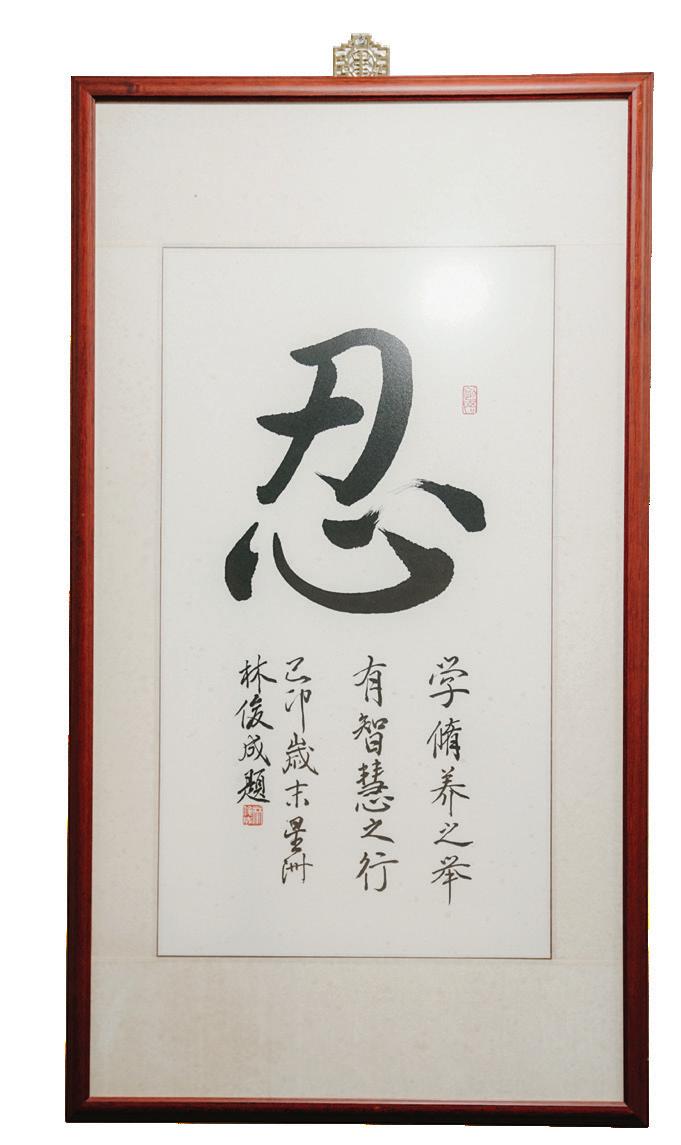 忍
学脩养之举
有智慧之行
己卯歲末星洲
林俊成題